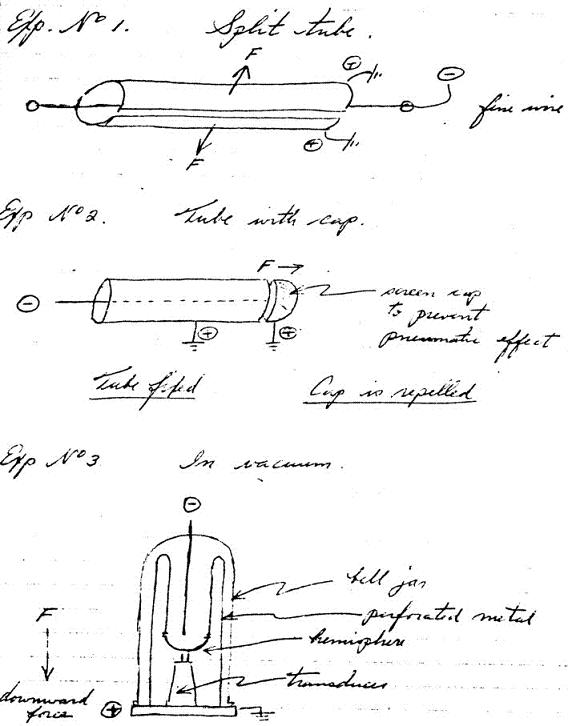 Exp. No 1. Split tube.
F
+
−
fine wire
F
+
Exp No 2. Tube with cap.
F →
−
screen cap
to prevent
pneumatic effect
+ +
Tube fixed Cap is repelled
Exp No 3 In vacuum.
−
bell jar
perforated metal
F
hemisphere
transducer
downward
force
+